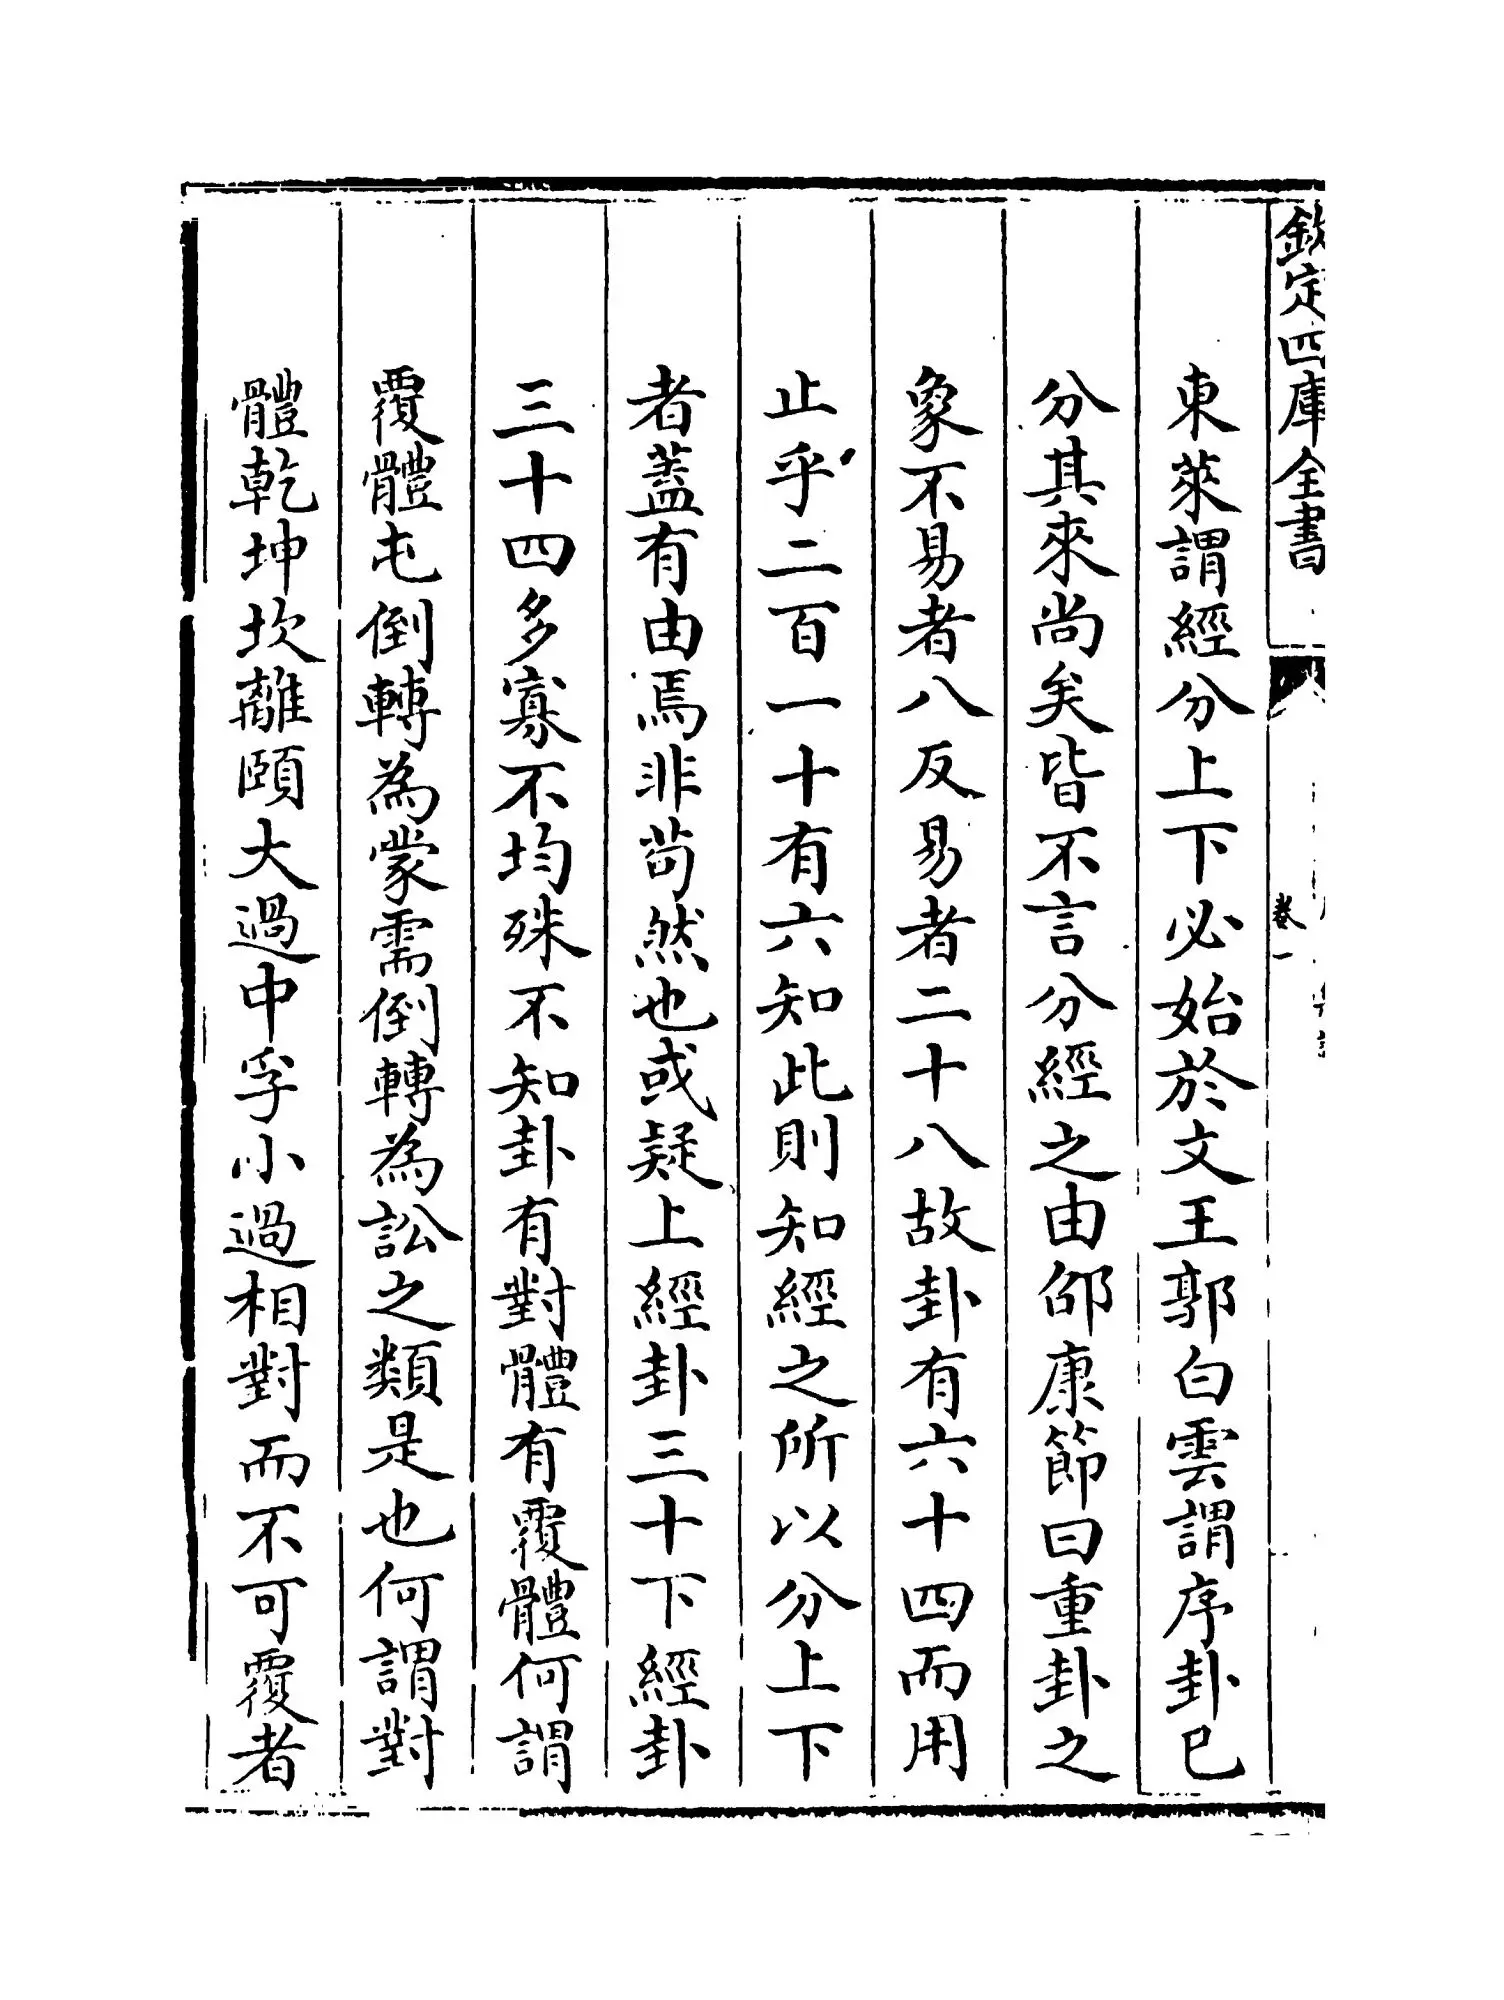 欽定四庫全書
卷一
東萊謂經分上下必始於文王郭白雲謂序卦已
分其來尚矣皆不言分經之由邵康節曰重卦之
象不易者八反易者二十八故卦有六十四而用
止乎二百一十有六知此則知經之所以分上下
者蓋有由焉非苟然也或疑上經卦三十下經卦
三十四多寡不均殊不知卦有對體有覆體何謂
覆體屯倒轉為蒙需倒轉為訟之類是也何謂對
體乾坤坎離頤大過中孚小過相對而不可覆者